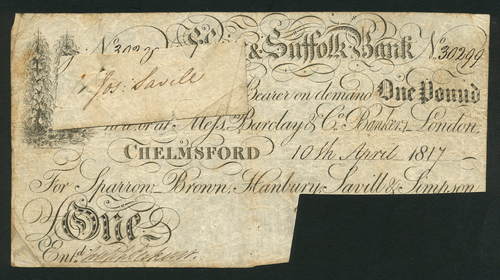 No. 30299 & Suffolk Bank No. 30299
Jos: Savill
Bearer on demand One Pound
here or at Messrs. Barclay & Co. Bankers London
CHELMSFORD 10th April 1817
For Sparrow, Brown, Hanbury, Savill & Simpson
One
Entd.